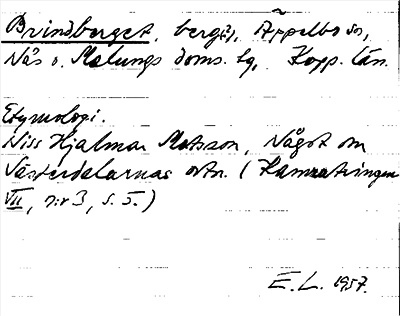 Brindberget, berg(?), Äppelbo sn,
Nås o. Malungs doms. tg, Kopp. län.
Etymologi.
Niss Hjalmar Matsson, Något om
Västerdalarnas ortn. (Kamratringen
VII, nr 3, s. 5.)
E. L. 1957.